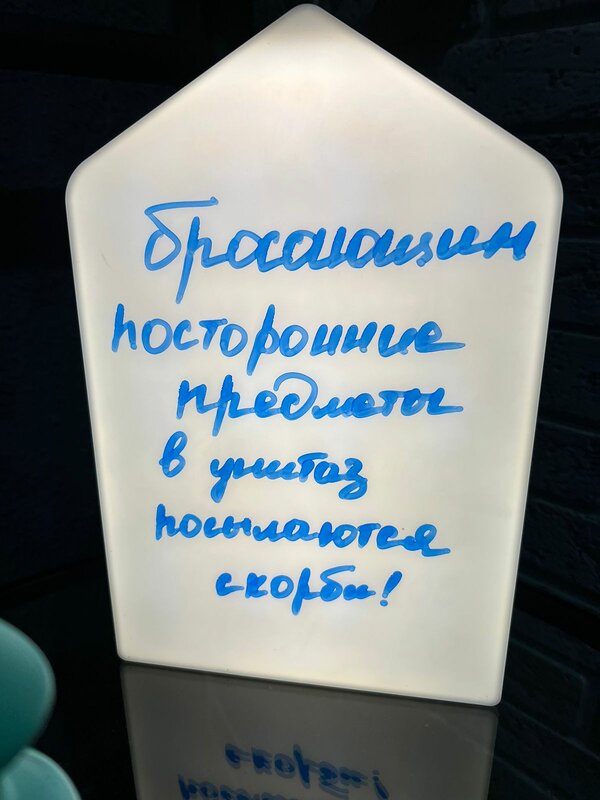 бросающим
посторонние
предметы
в унитаз
посылаются
скорби!